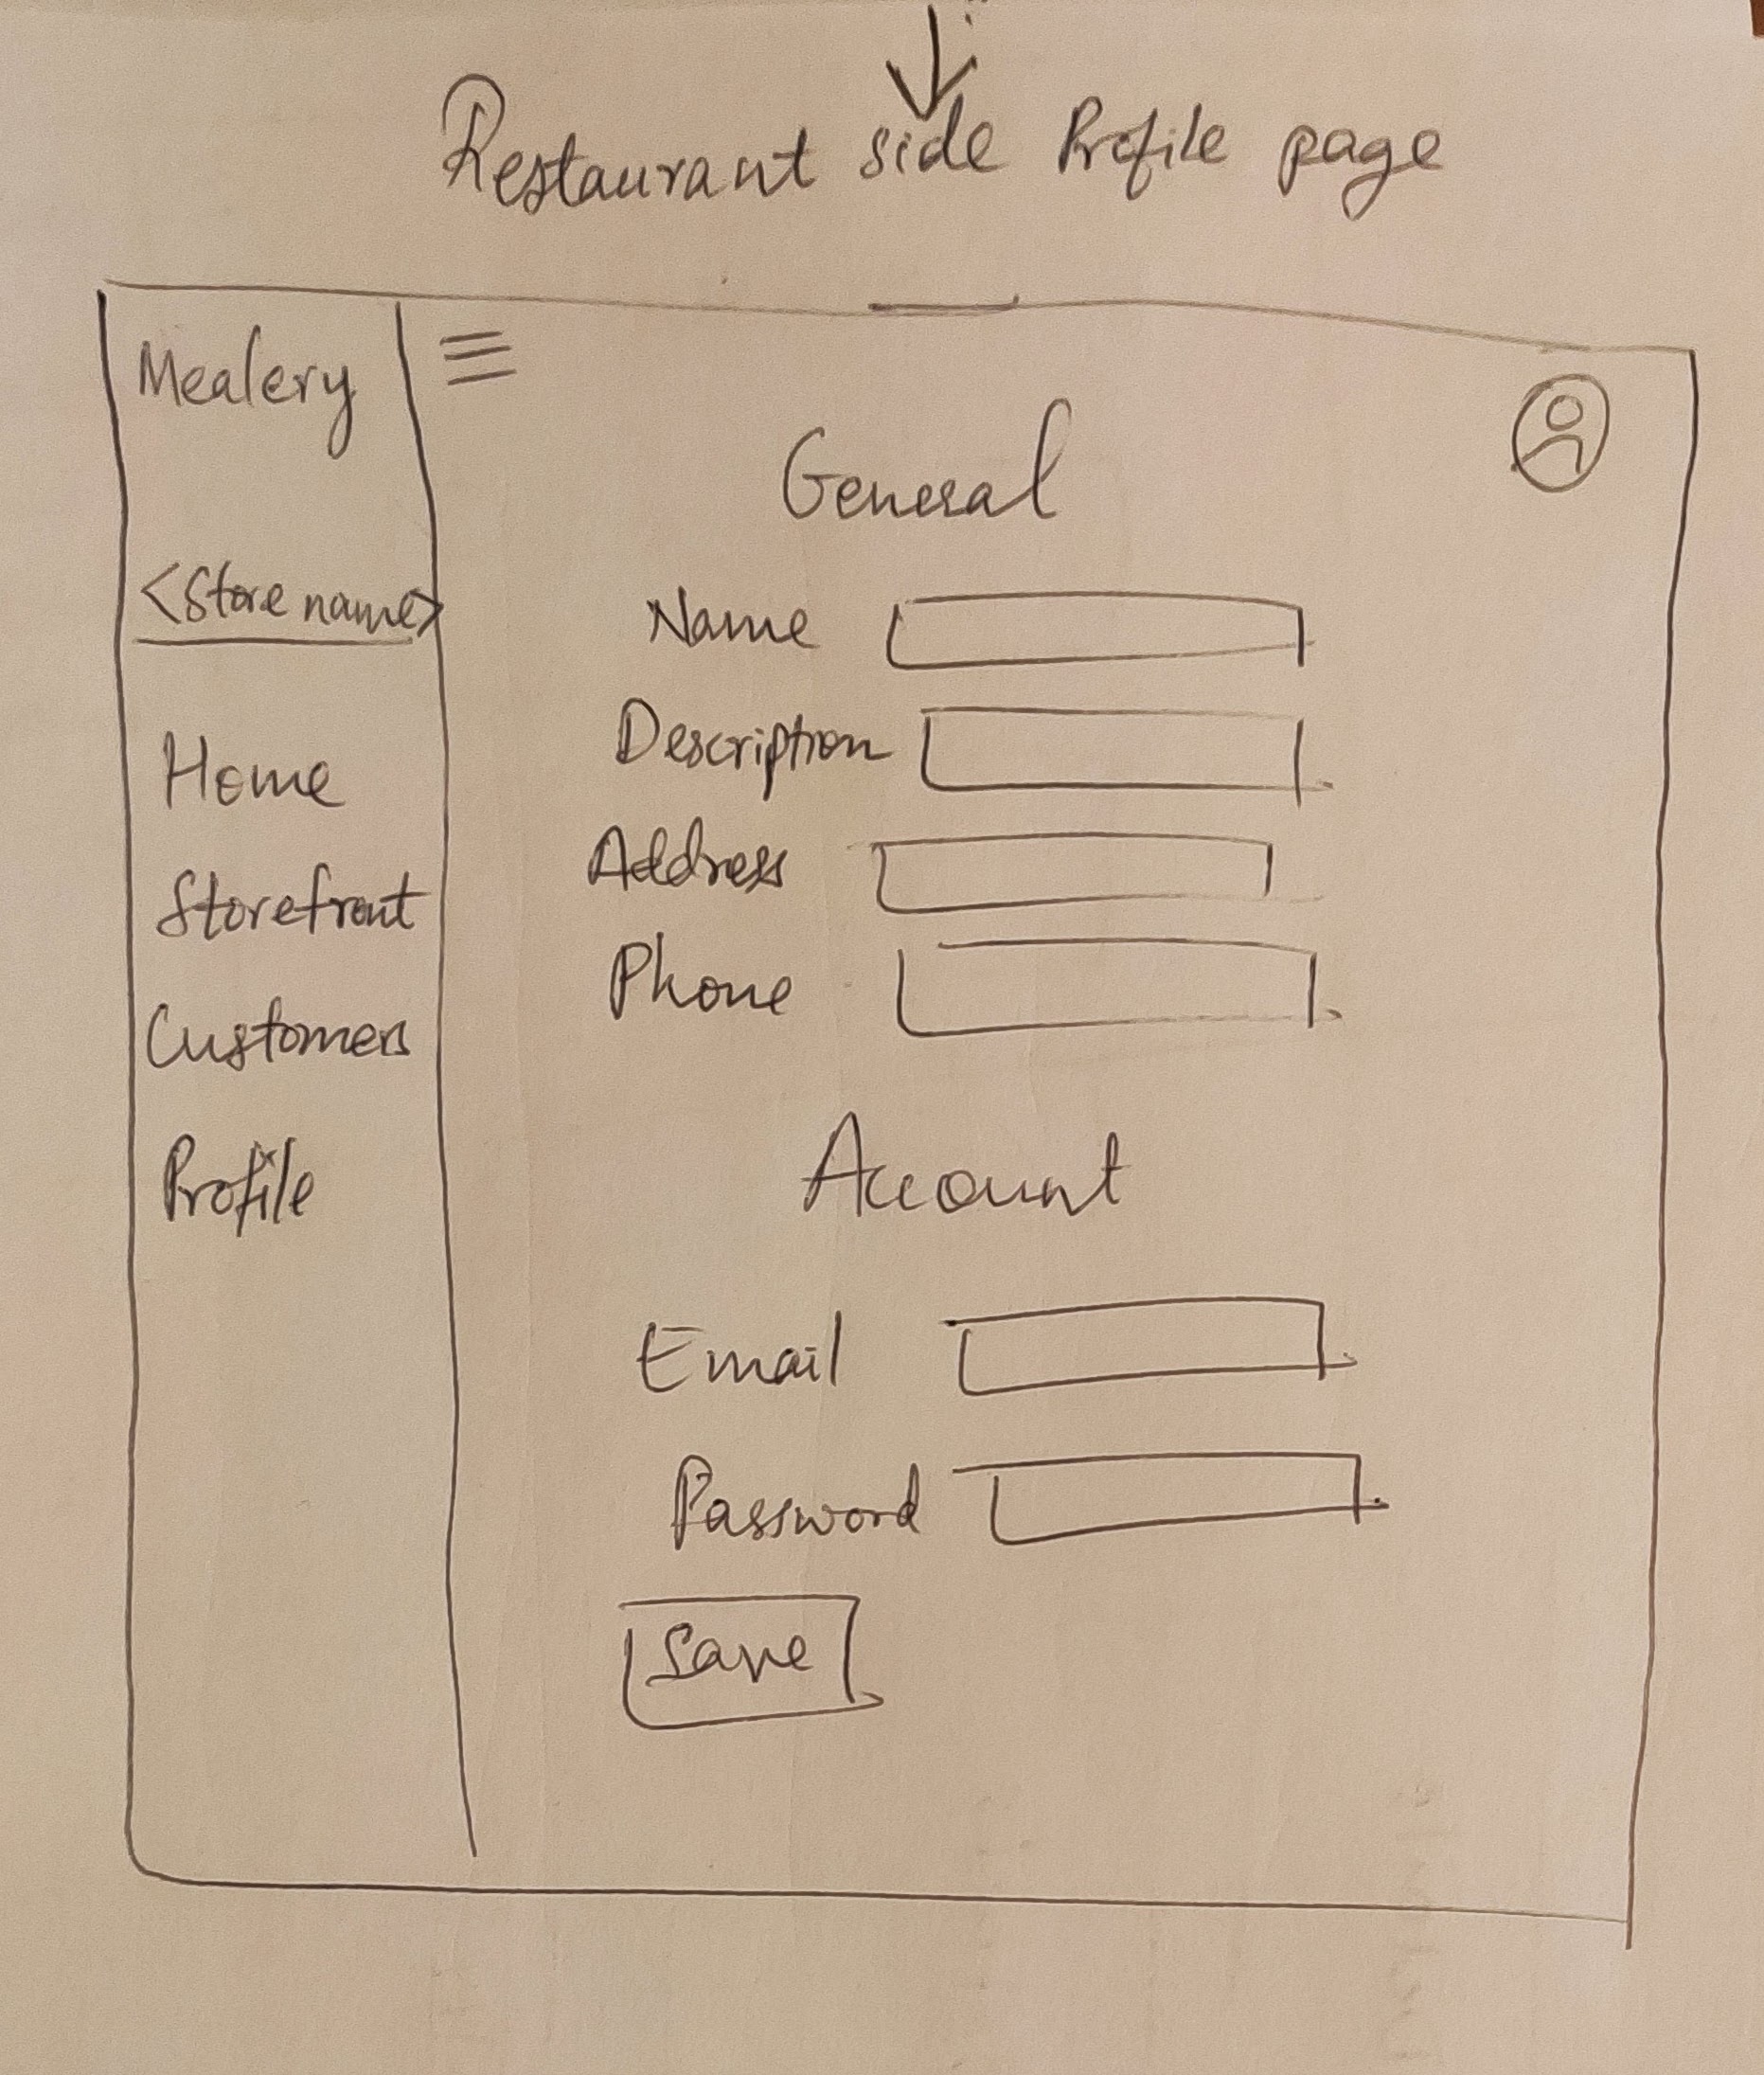 Restaurant side Profile page
Mealery
<Store name>
Home
Storefront
Customers
Profile
General
Name
Description
Address
Phone
Account
Email
Password
Save